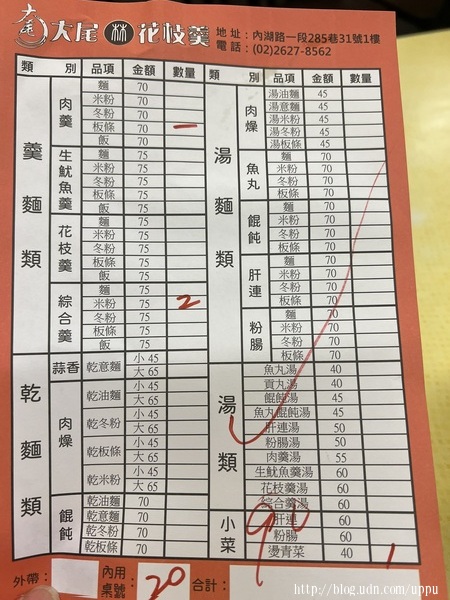 大尾 林 花枝羹 地址：內湖路一段285巷31號1樓
電話：(02)2627-8562
類別 品項 金額 數量
羹麵類
肉羹
麵 70
米粉 70
冬粉 70
板條 70 一
飯 70
生魷魚羹
麵 75
米粉 75
冬粉 75
板條 75
飯 75
花枝羹
麵 75
米粉 75
冬粉 75
板條 75
飯 75
綜合羹
麵 75
米粉 75 2
冬粉 75
板條 75
飯 75
乾麵類
蒜香
乾意麵 小 45
大 65
肉燥
乾油麵 小 45
大 65
乾冬粉 小 45
大 65
乾板條 小 45
大 65
乾米粉 小 45
大 65
餛飩
乾油麵 70
乾意麵 70
乾冬粉 70
乾板條 70
類別 品項 金額 數量
湯麵類
肉燥
湯油麵 45
湯意麵 45
湯米粉 45
湯冬粉 45
湯板條 45
魚丸
麵 70
米粉 70
冬粉 70
板條 70
餛飩
麵 70
米粉 70
冬粉 70
板條 70
肝連
麵 70
米粉 70
冬粉 70
板條 70
粉腸
麵 70
米粉 70
冬粉 70
板條 70
湯類
魚丸湯 40
貢丸湯 40
餛飩湯 45
魚丸餛飩湯 45
肝連湯 50
粉腸湯 50
肉羹湯 55
生魷魚羹湯 60
花枝羹湯 60
綜合羹湯 60
小菜
肝連 60
粉腸 60
燙青菜 40 1
外帶： 內用桌號： 20 合計：
http://blog.udn.com/uppu